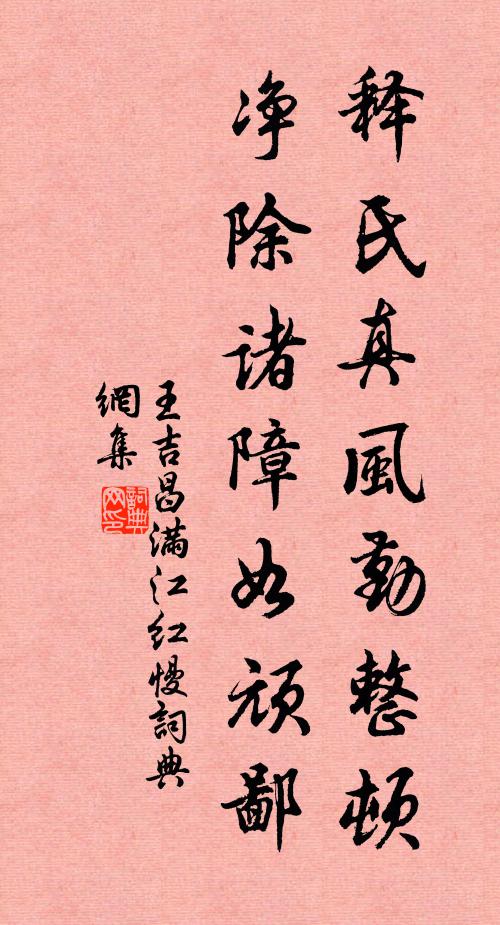 释氏真風勤整顿
净除诸障如顽鄙
王吉昌满江红慢詞典
網集
詞典
网印